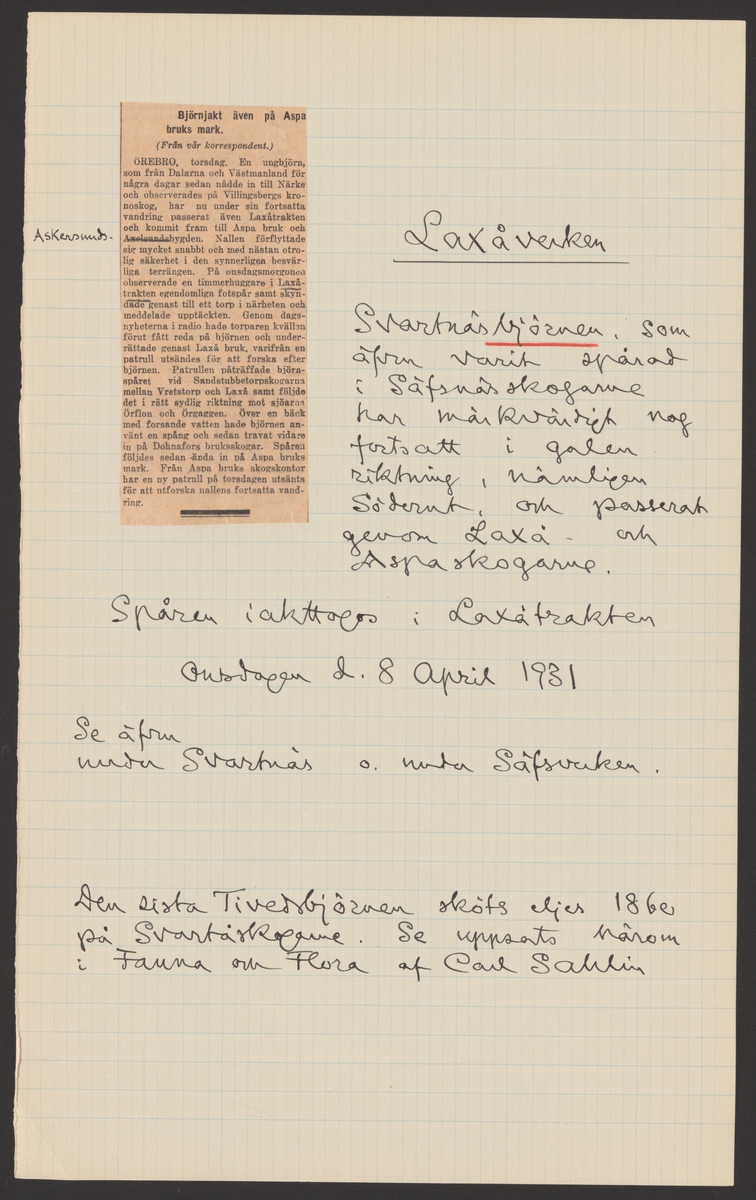 Björnjakt även på Aspa
bruks mark.
(Från vår korrespondent.)
ÖREBRO, torsdag. En ungbjörn,
som från Dalarna och Västmanland för
några dagar sedan nådde in till Närke
och observerades på Villingsbergs kro-
noskog, har nu under sin fortsatta
vandring passerat även Laxåtrakten
och kommit fram till Aspa bruk och
Askersunds- Axelsundsbygden. Nallen förflyttade
sig mycket snabbt och med nästan otro-
lig säkerhet i den synnerligen besvär-
liga terrängen. På onsdagsmorgonen
observerade en timmerhuggare i Laxå-
trakten egendomliga fotspår samt skyn-
dade genast till ett torp i närheten och
meddelade upptäckten. Genom dags-
nyheterna i radio hade torparen kvällen
förut fått reda på björnen och under-
rättade genast Laxå bruk, varifrån en
patrull utsändes för att forska efter
björnen. Patrullen påträffade björn-
spåret vid Sandstubbetorpskogarna
mellan Vretstorp och Laxå samt följde
det i rätt sydlig riktning mot sjöarna
Örflon och Örgaggen. Över en bäck
med forsande vatten hade björnen an-
vänt en spång och sedan travat vidare
in på Dohnafors bruksskogar. Spåren
följdes sedan ända in på Aspa bruks
mark. Från Aspa bruks skogskontor
har en ny patrull på torsdagen utsänts
för att utforska nallens fortsatta vand-
ring.
Laxåverken
Svartnäsbjörnen, som
äfven varit spårad
i Säfsnässkogarne
har märkvärdigt nog
fortsatt i galen
riktning, nämligen
Söderut, och passerat
genom Laxå- och
Aspaskogarne.
Spåren iakttogos i Laxåtrakten
Onsdagen d. 8 April 1931
Se äfven
under Svartnäs o. under Säfsverken.
Den sista Tivedsbjörnen sköts eljes
på Svartåskogarne. Se uppsats härom
i Fauna och Flora af Carl Sahlin